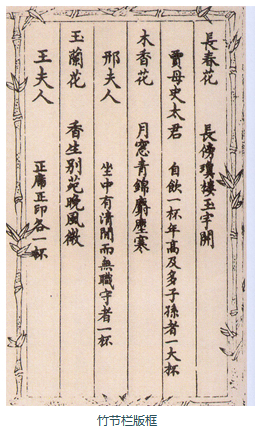 長春花　長傍瓊樓玉宇開
賈母史太君　自飲一杯年高及多子孫者一大杯
木香花　月窓青錦麝塵寒
邢夫人　坐中有清閒而無職守者一杯
玉蘭花　香生別苑晚風微
王夫人　正席正印各一杯
竹节栏版框